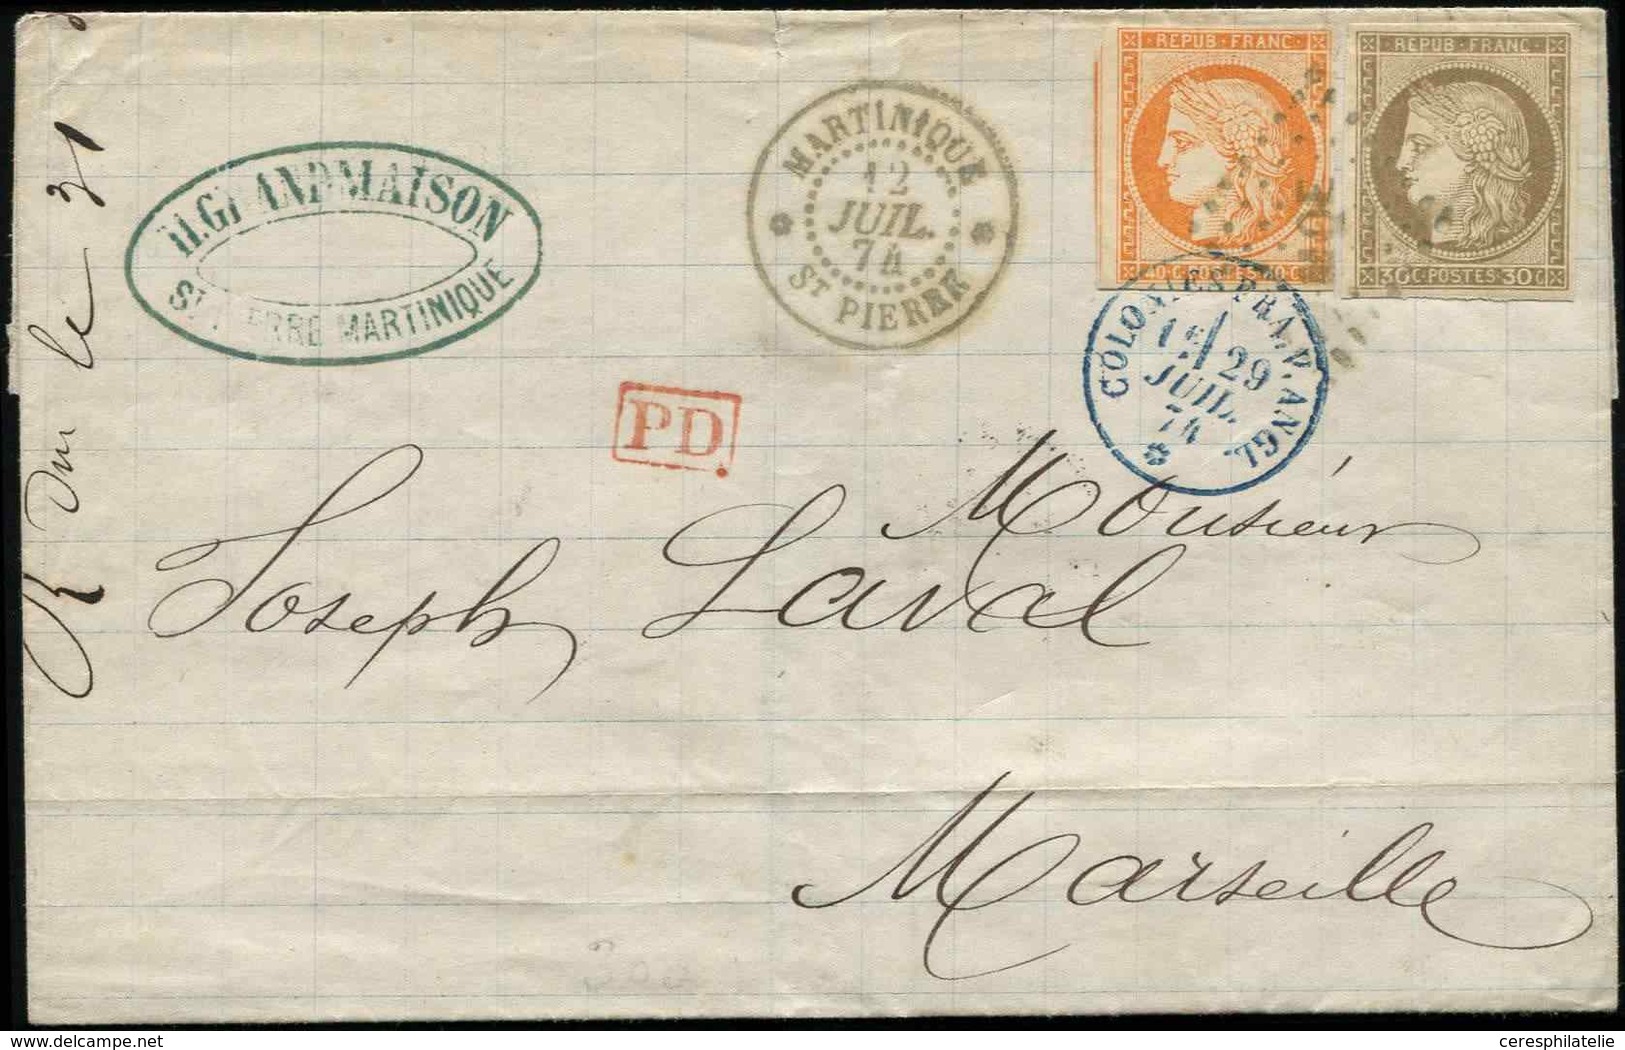 REPUB·FRANC
40·C·POSTES·40·C
REPUB·FRANC
30·C·POSTES·30·C
H. GRANDMAISON
ST PIERRE MARTINIQUE
MARTINIQUE
12
JUIL.
74
ST PIERRE
COLONIES FRA. V. ANGL.
29
JUIL.
74
PD.
R du le 31
Monsieur
Joseph Laval
Marseille
ceresphilatelie